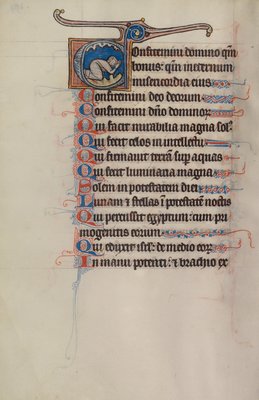 Confitemini domino qm̄
bonus: qm̄ ineternum
misericordia eius
Confitemini deo deorum
Confitemini dn̄o dominoꝝ
Qui facit mirabilia magna sol᷒
Qui fecit celos in intellectu
Qui firmauit terrā sup aquas
Qui fecit luminaria magna
Solem in potestatem diei
Lunam ⁊ stellas ī potestatē noctis
Qui percussit egyptum: cum pri
mogenitis eorum
Qui eduxit isrl̄: de medio eoꝝ
In manu potenti: ⁊ brachio ex